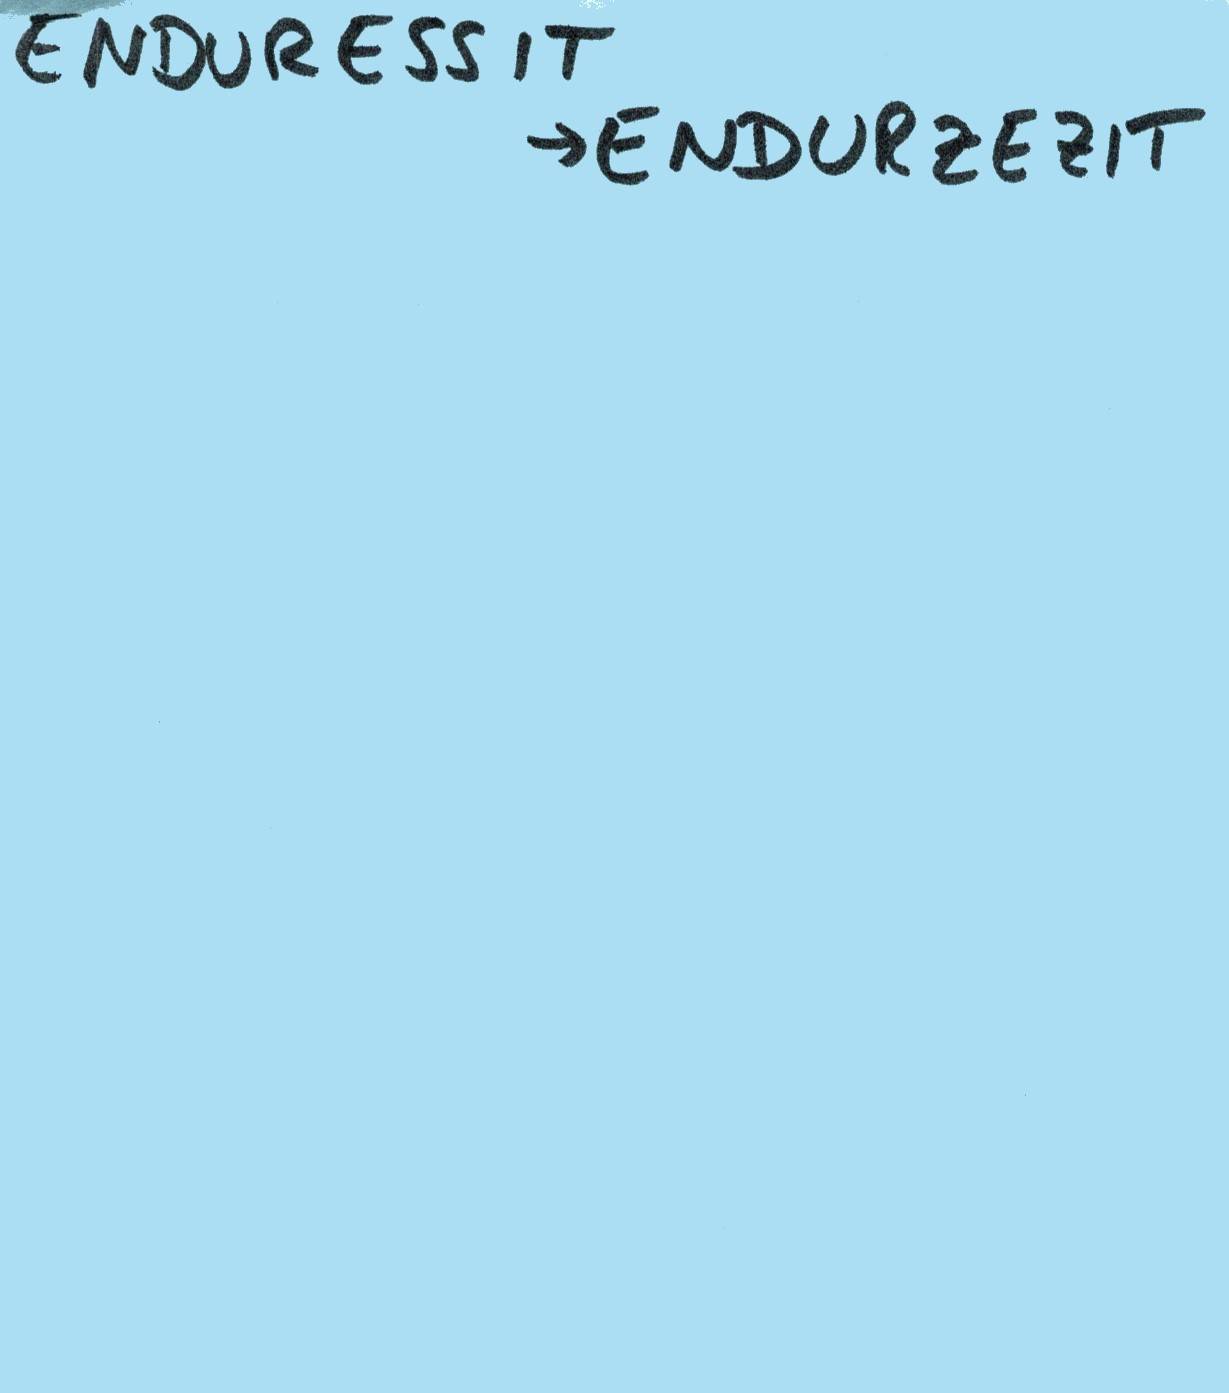 ENDURESSIT
→ENDURZEZIT